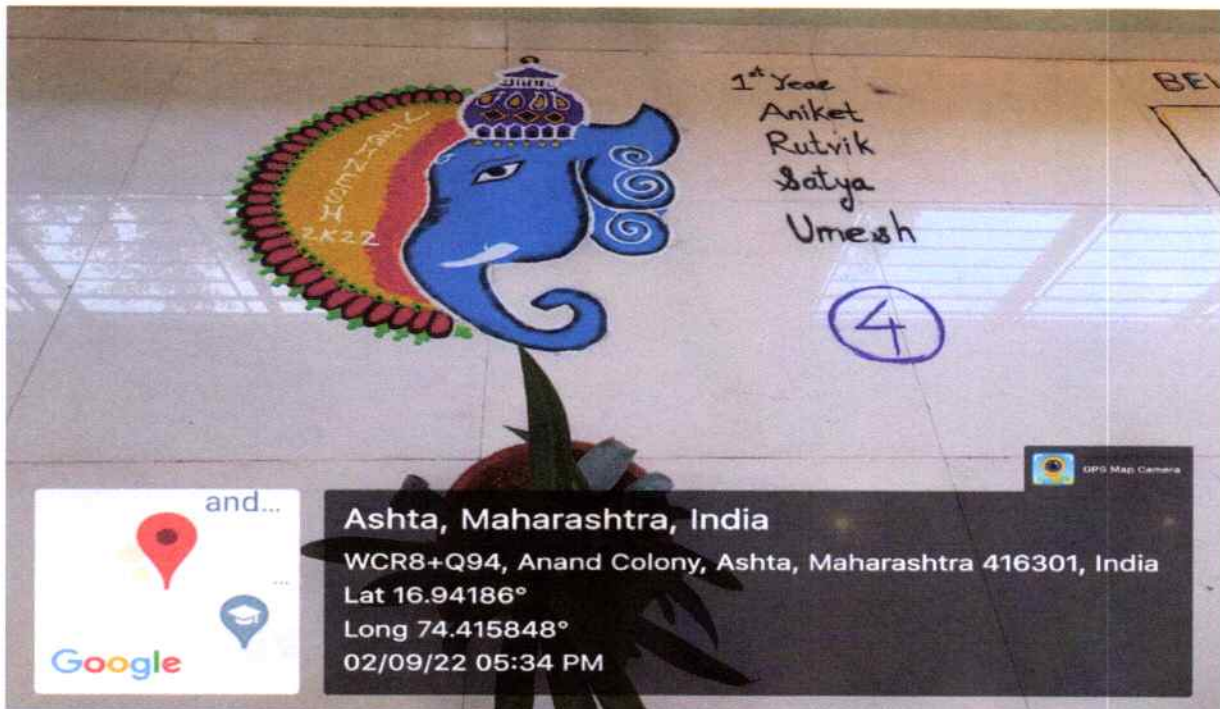 2K22
1st Year
Aniket
Rutvik
Satya
Umesh
4
GPS Map Camera
and...
...
Google
Ashta, Maharashtra, India
WCR8+Q94, Anand Colony, Ashta, Maharashtra 416301, India
Lat 16.94186°
Long 74.415848°
02/09/22 05:34 PM